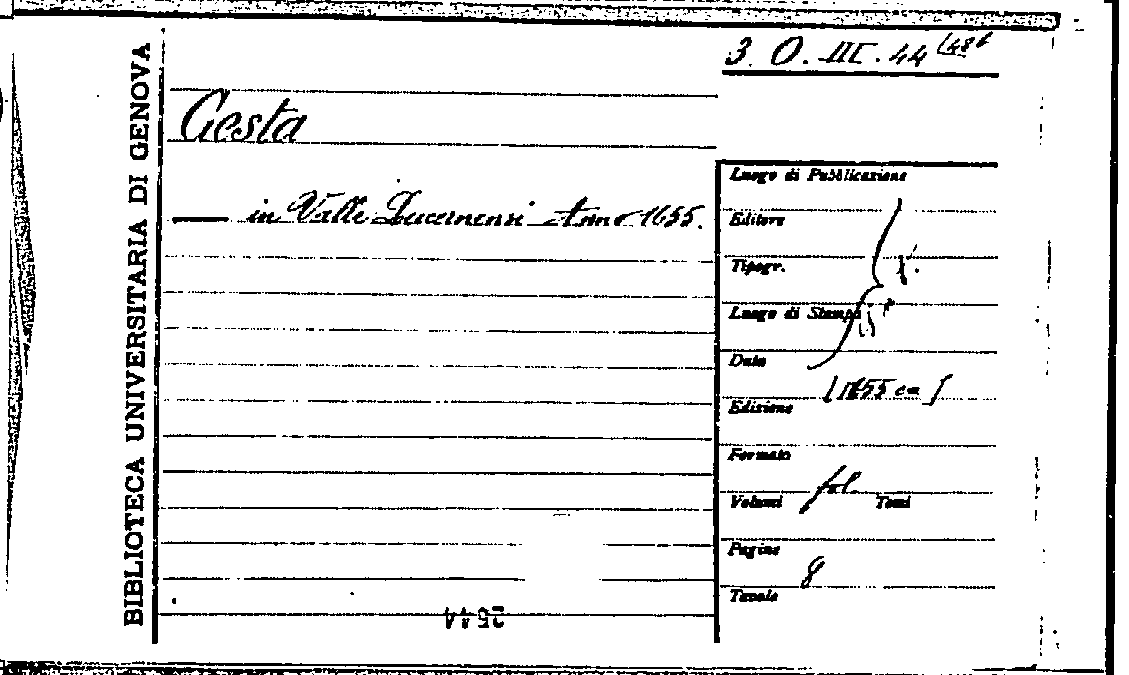 BIBLIOTECA UNIVERSITARIA DI GENOVA
3. O. III. 44
Gesta
— in Valle Lucernensi Anno 1655.
Luogo di Pubblicazione
Editore
Tipogr.
Luogo di Stampa
Data
[1655 ca]
Edizione
Formato
fol.
Volumi Tomi
Pagine
8
Tavole
2644